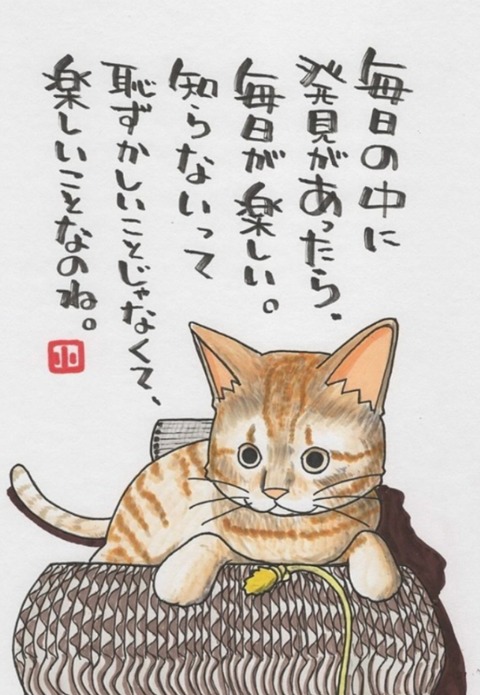 毎日の中に
発見があったら、
毎日が楽しい。
知らないって
恥ずかしいことじゃなくて、
楽しいことなのね。